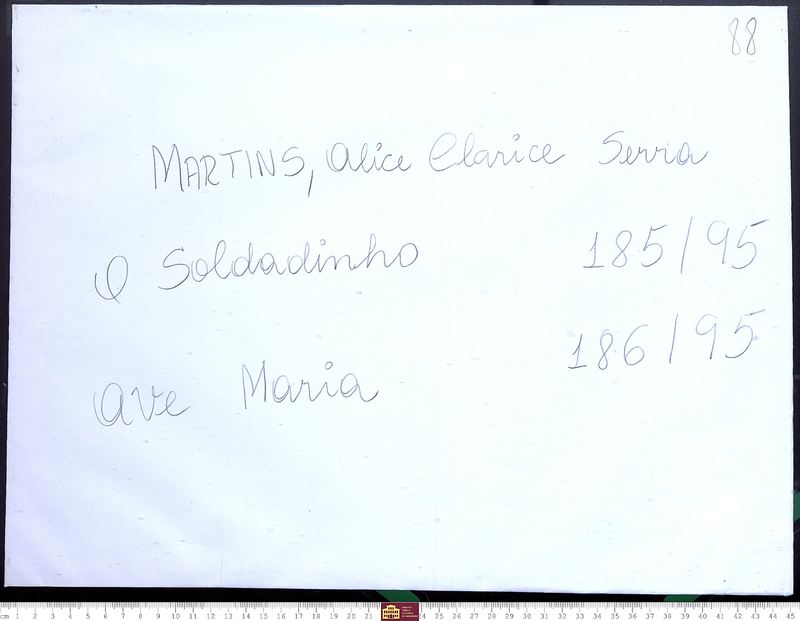 88
MARTINS, Alice Clarice Serra
O Soldadinho 185/95
Ave Maria 186/95
cm 1 2 3 4 5 6 7 8 9 10 11 12 13 14 15 16 17 18 19 20 21 24 25 26 27 28 29 30 31 32 33 34 35 36 37 38 39 40 41 42 43 44 45